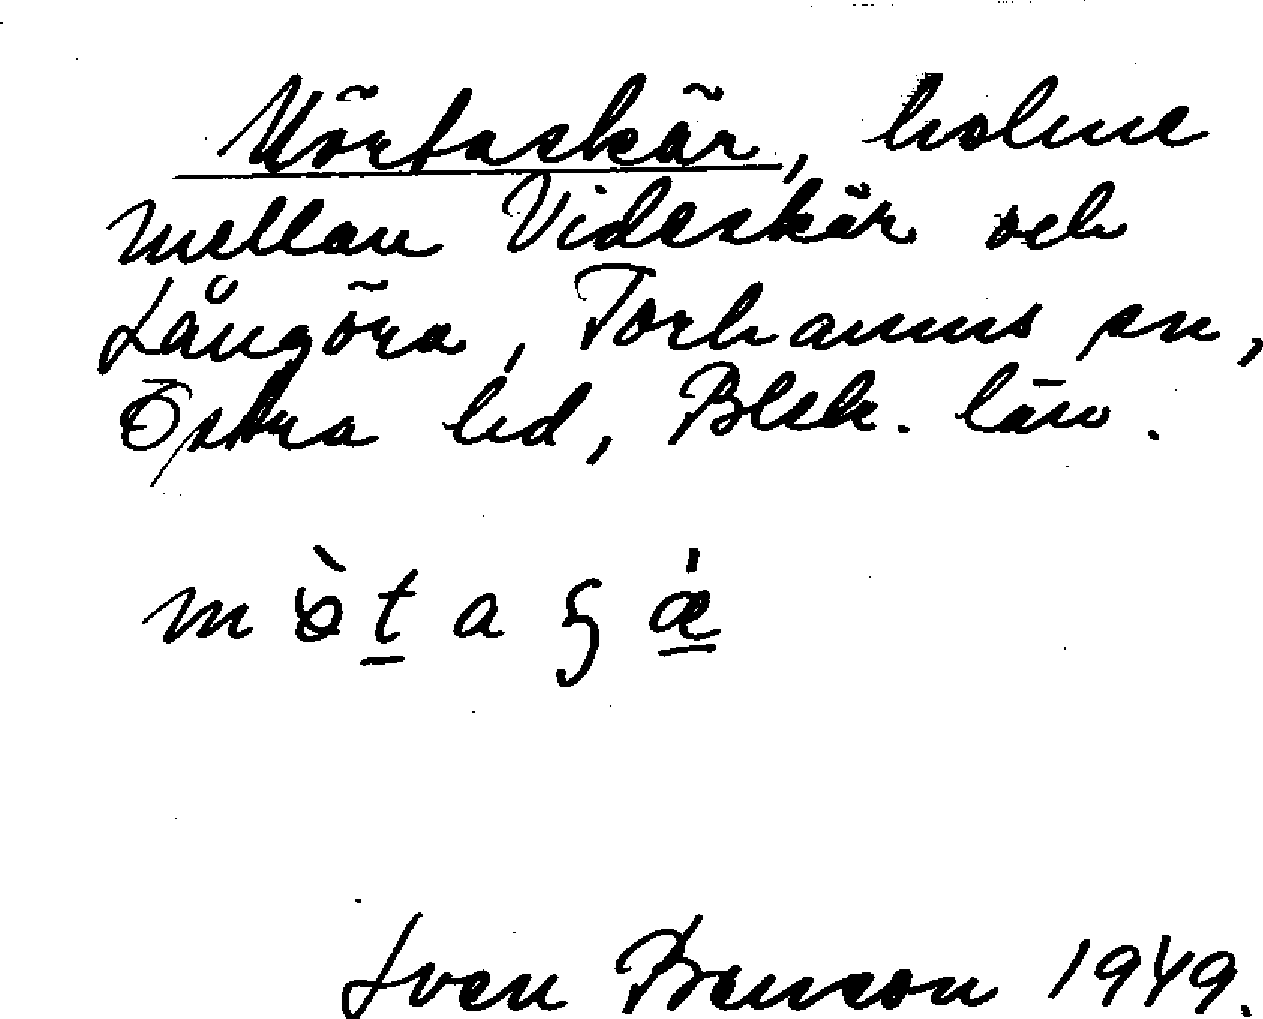 Mörtaskär, holme
mellan Videskär och
Långöra, Torhamns sn,
Östra hd, Blek. län.
Sven Benson 1949.